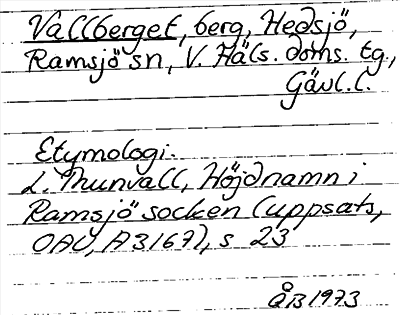 Vallberget, berg, Hedsjö,
Ramsjö sn, V. Häls. doms. tg,
Gävl. l.
Etymologi.
L. Thunvall, Höjdnamn i
Ramsjö socken (uppsats,
OAU, A3167), s 23
ÅB 1973